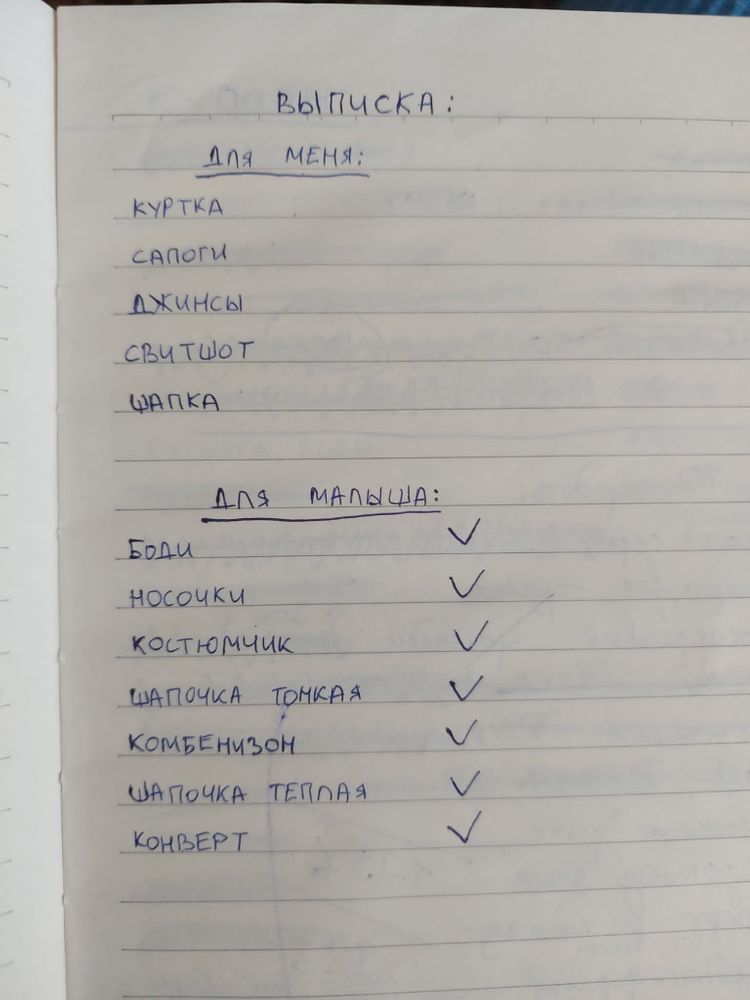 ВЫПИСКА:
ДЛЯ МЕНЯ:
КУРТКА
САПОГИ
ДЖИНСЫ
СВИТШОТ
ШАПКА
ДЛЯ МАЛЫША:
БОДИ ✓
НОСОЧКИ ✓
КОСТЮМЧИК ✓
ШАПОЧКА ТОНКАЯ ✓
КОМБЕНИЗОН ✓
ШАПОЧКА ТЕПЛАЯ ✓
КОНВЕРТ ✓